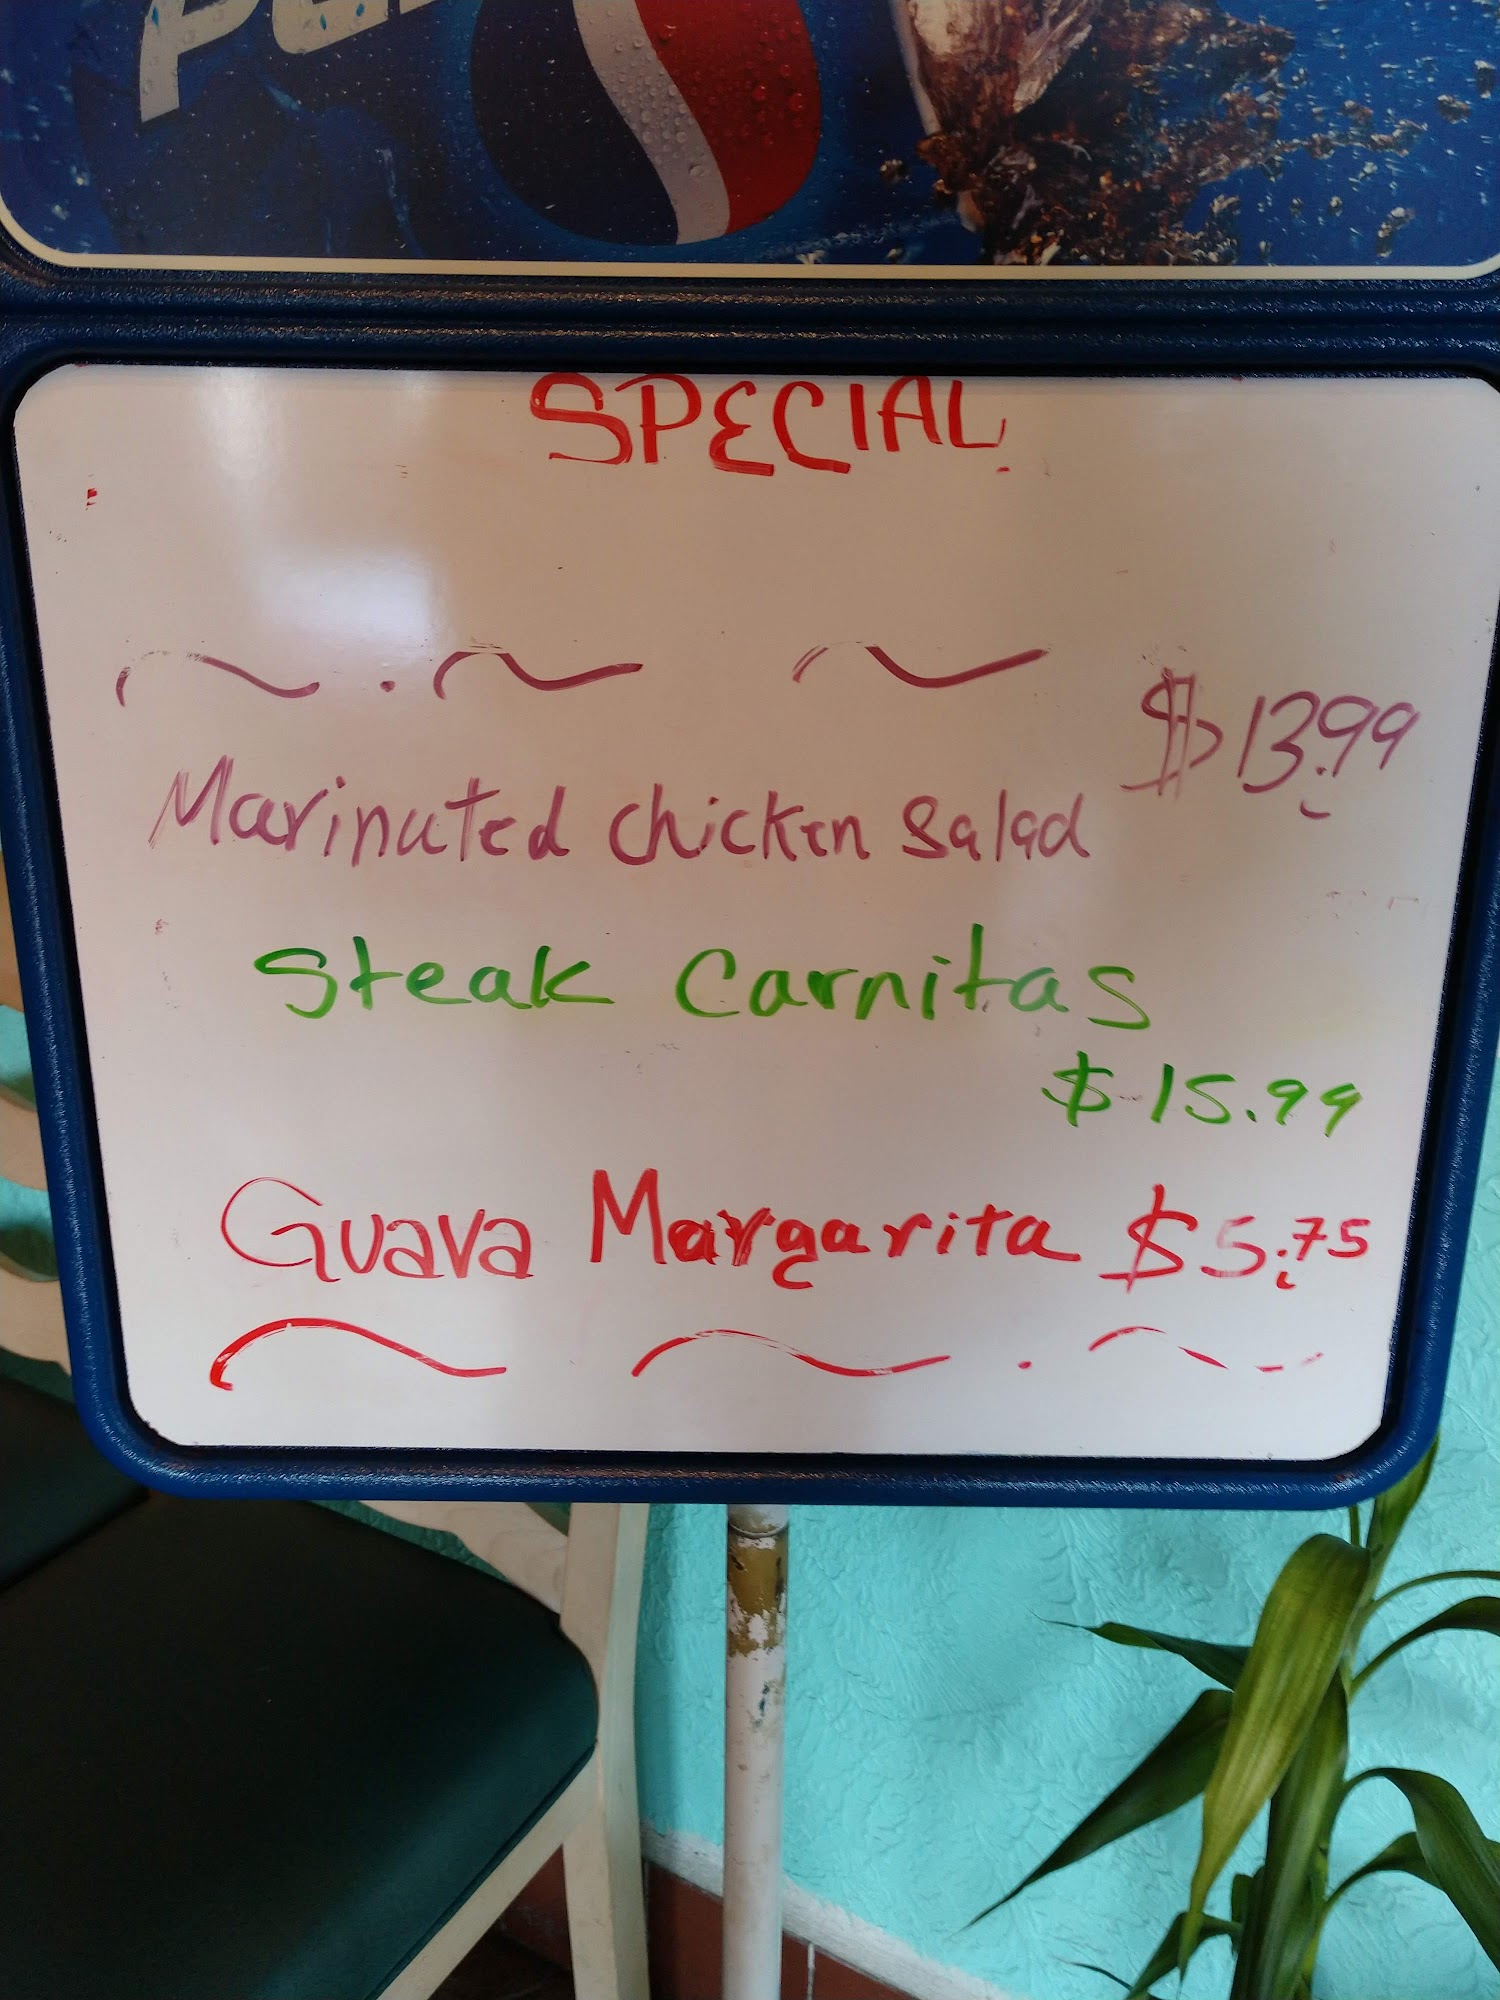 SPECIAL
$13.99
Marinated chicken Salad
Steak Carnitas
$15.99
Guava Margarita $5.75